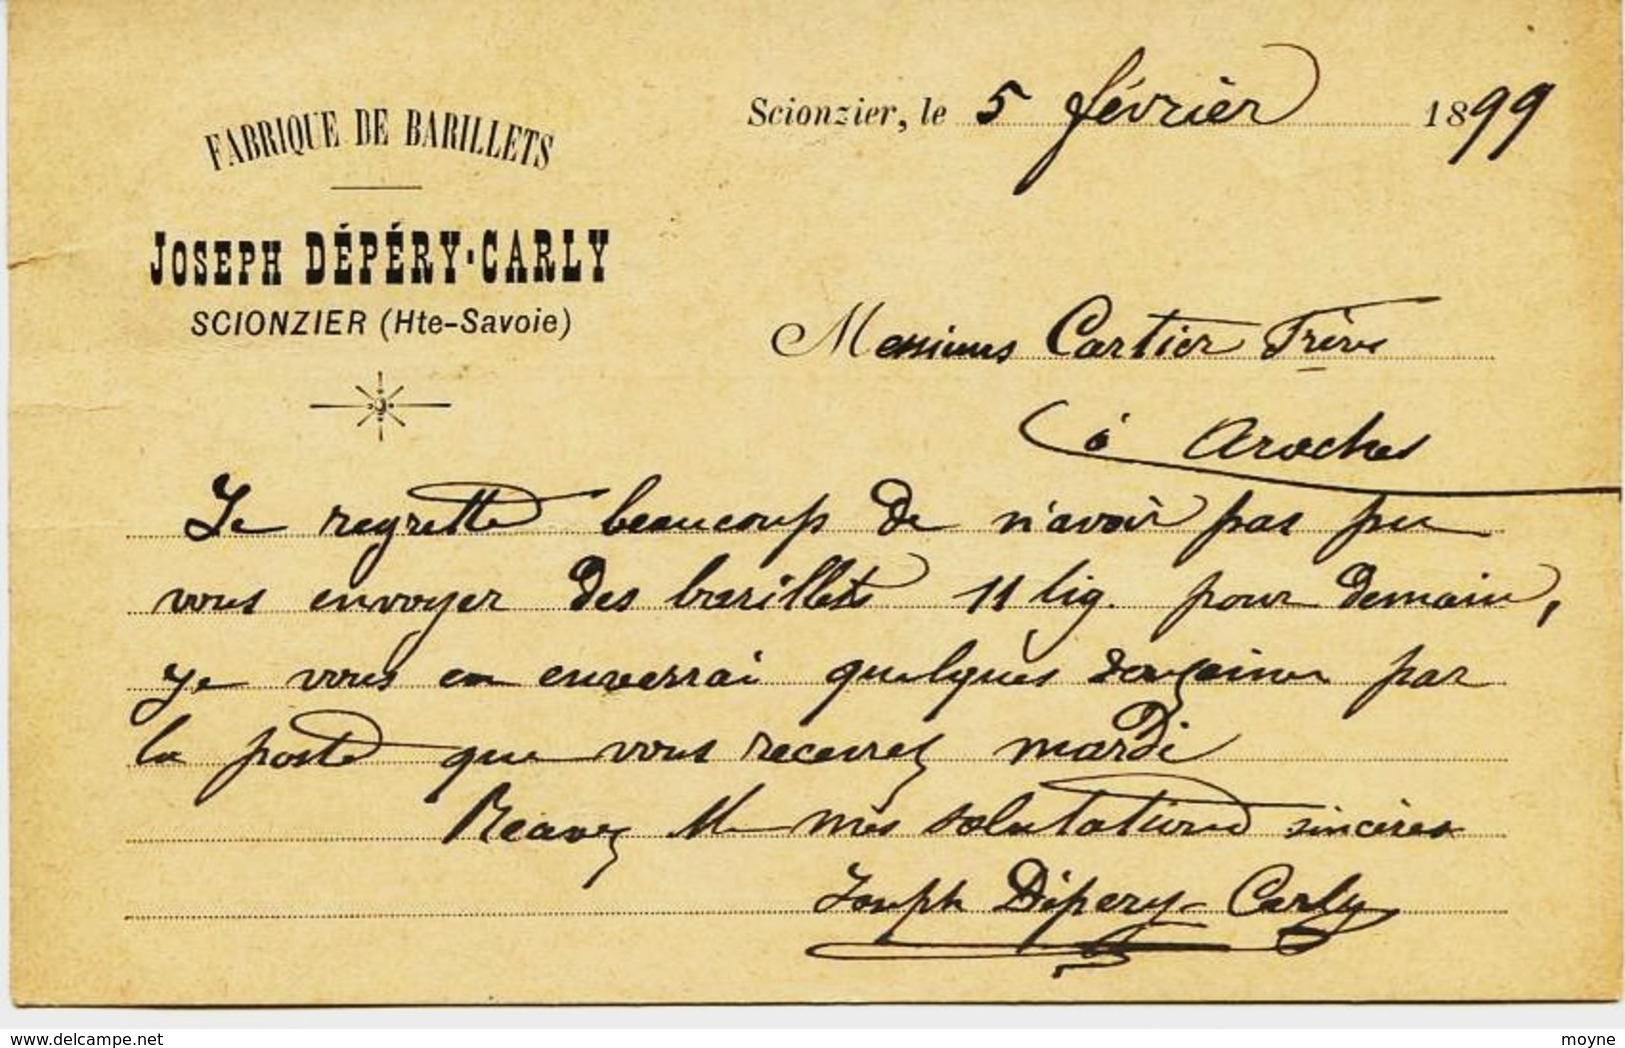 FABRIQUE DE BARILLETS
JOSEPH DÉPÉRY-CARLY
SCIONZIER (Hte-Savoie)
Scionzier, le 5 février 1899
Messieurs Cartier Frères
à Araches
Je regrette beaucoup de n'avoir pas pu
vous envoyer des barillets 11 lig. pour demain,
je vous en enverrai quelques douzaines par
la poste que vous recevrez mardi
Recevez M mes salutations sincères
Joseph Dépery-Carly
delcampe.net
moyne